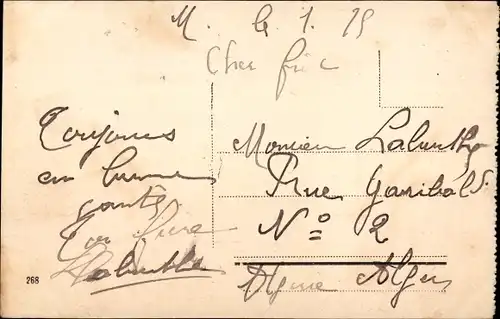 M. le 1. 19
Cher frère
Toujours
en bonne
santé
Ton frère
Labuthe
Monsieur Labuthe
Rue Garibaldi
No 2
Algérie Alger
268